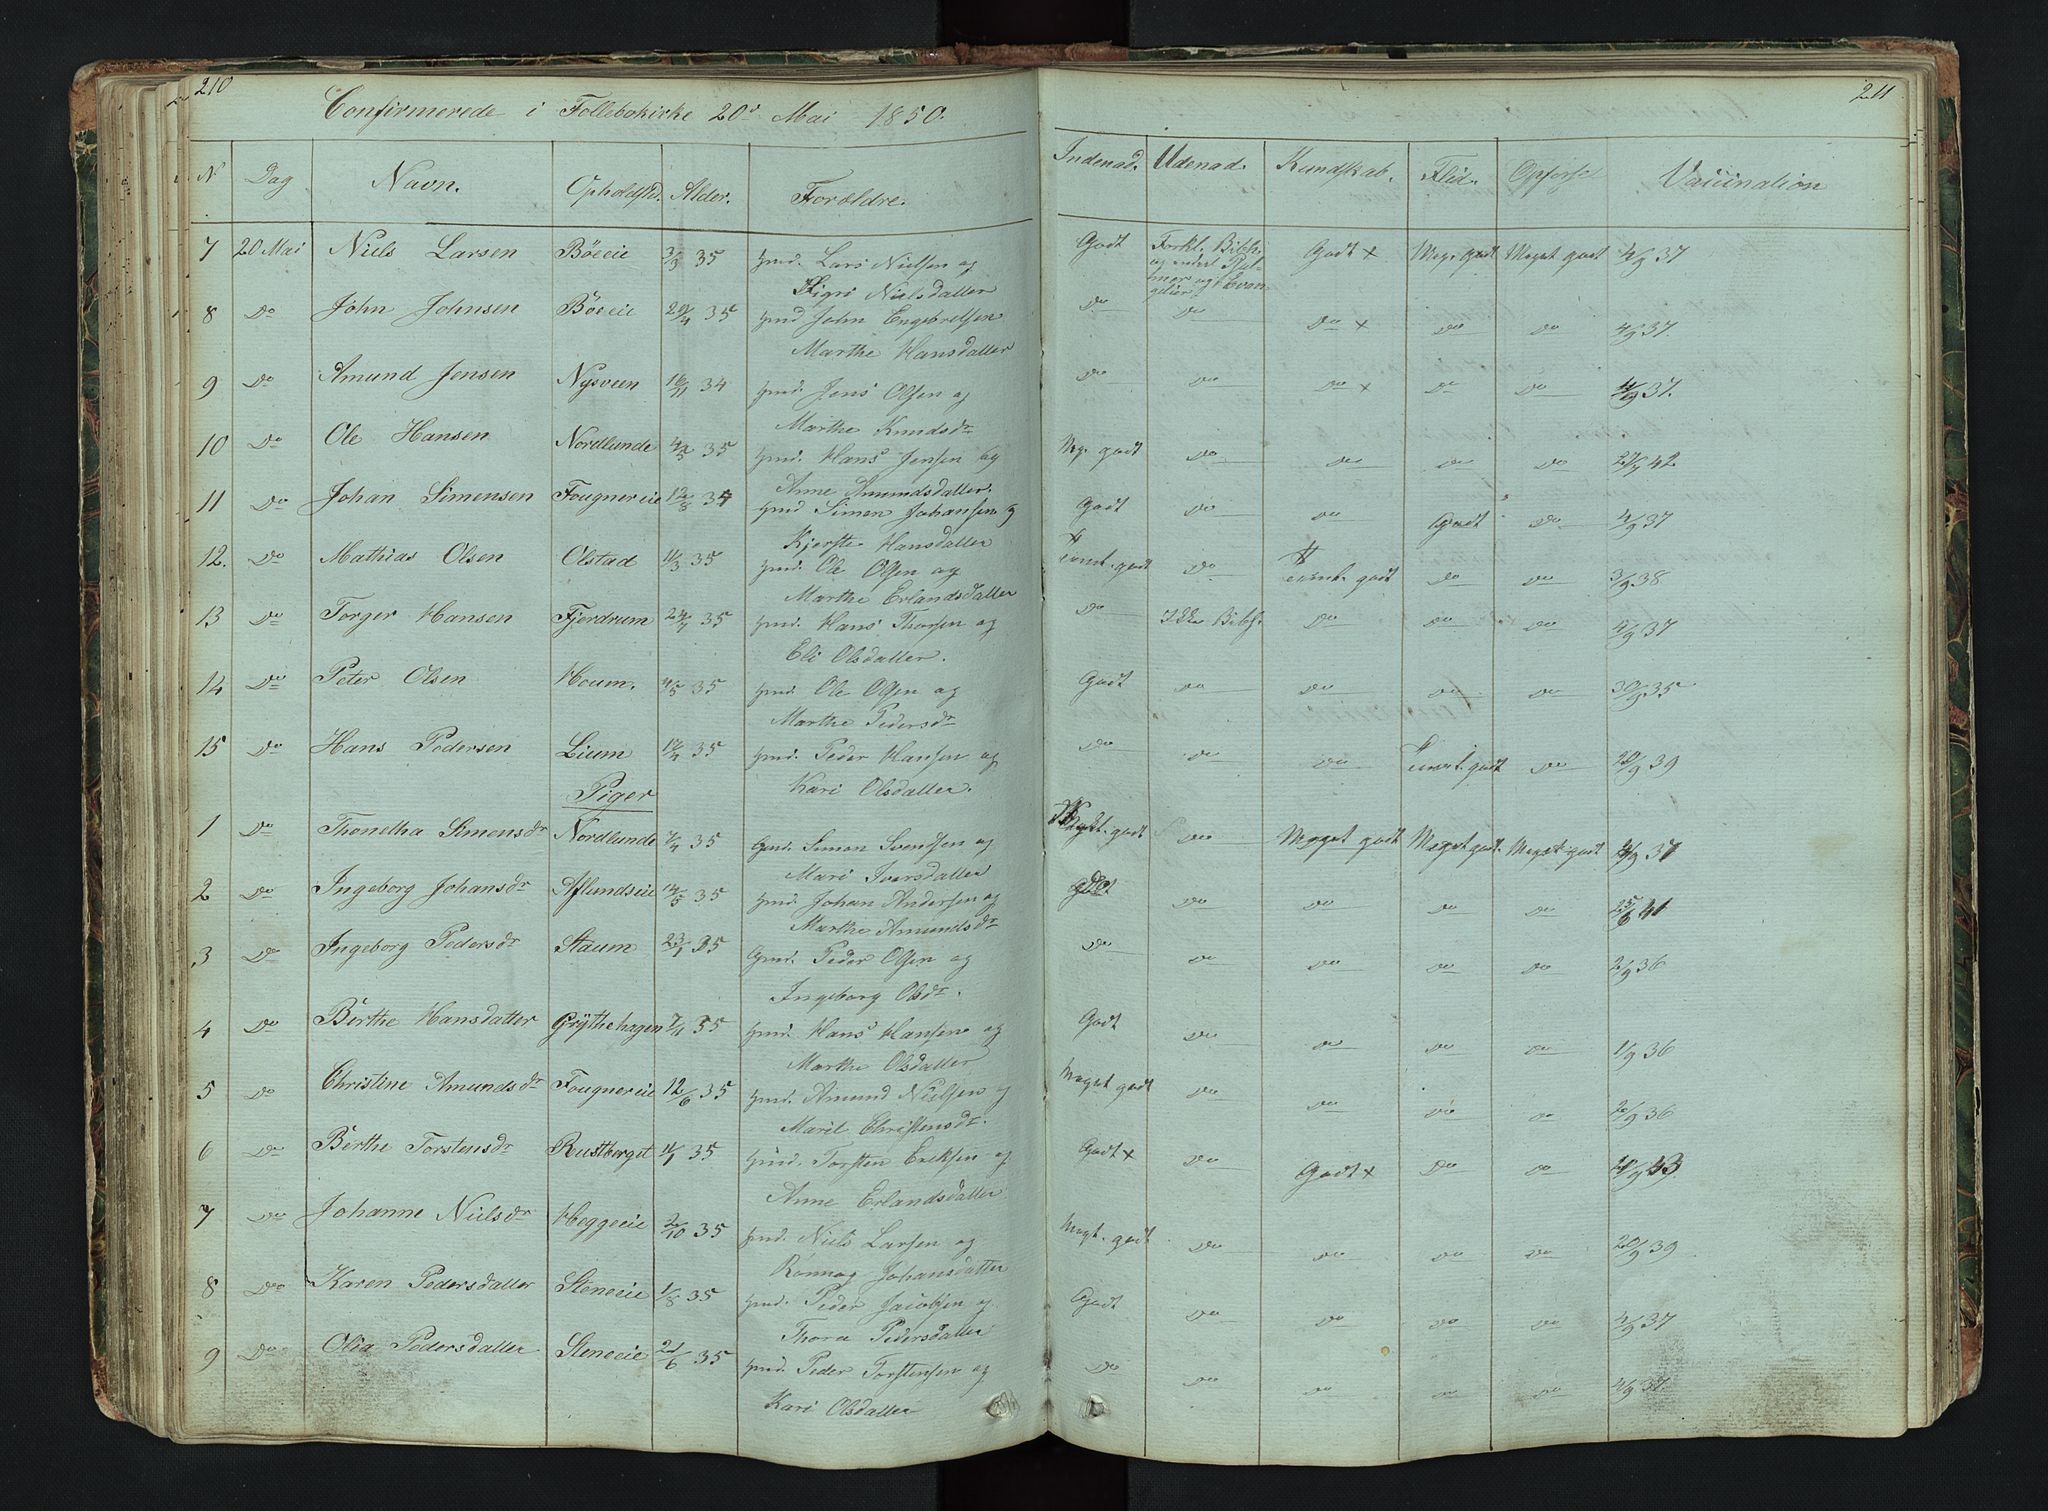 210
Confirmerede i Follebokirke 20de Mai 1850.
N Dag Navn. Opholdstd. Alder. Forældre.
7 20 Mai Niels Larsen Bøeeie 3/3 35 Gmd. Lars Nielsen og
Sigri Nielsdatter
8 Do John Johnsen Bøeeie 29/4 35 Gmd John Engebretsen
Marthe Hansdatter
9 Do Amund Jensen Nysveen 16/11 34 Gmd Jens Olsen og
Marthe Knudsdr
10 Do Ole Hansen Nordlunde 4/3 35 Gmd. Hans Jensen og
Anne Amundsdatter.
11 Do Johan Simensen Fougner eie 12/8 34 Gmd Simen Johansen og
Kjersti Hansdatter
12. Do Mathias Olsen Olstad 11/3 35 Gmd. Ole Olsen og
Marthe Erlandsdatter
13 Do Torger Hansen Fjerdrum 24/7 35 Gmd. Hans Thorsen og
Eli Olsdatter.
14 Do Peter Olsen Houm. 4/5 35 Gmd. Ole Olsen og
Marthe Pedersdr
15 Do Hans Pedersen Lium 35 Gmd. Peder Hansen og
Kari Olsdatter.
Piger
1 Do Thonetha Simensdr Nordlunde 7/4 35 Gmd. Simon Svendsen og
Mari Iversdatter
2 Do Ingeborg Johansdr Aflundseie 14/5 35 Gmd. Johan Andersen og
Marthe Amundsdr
3 Do Ingeborg Pedersdr Staum 23/1 35 Gmd. Peder Olsen og
Ingeborg Olsdr.
4 Do Berthe Hansdatter Grythehagen 7/4 35 Gmd. Hans Hansen og
Marthe Olsdatter
5 Do Christine Amundsdr Fougner eie 12/6 35 Gmd. Amund Nielsen og
Marit Christensdr.
6 Do Berthe Torstensdr Rustberget 35 Gmd. Torsten Eriksen og
Anne Erlandsdatter
7 Do Johanne Nielsdr Heggeeie 2/10 35 Gmd. Niels Larsen og
Rønnog Johansdatter
8 Do Karen Pedersdatter Steneeie 1/8 35 Gmd. Peder Jacobsen og
Thora Pedersdatter
9 Do Olia Pedersdatter Steneeie 21/6 35 Gmd. Peder Torstensen og
Kari Olsdatter
211
Indenad. Udenad. Kundskab. Flid. Opførsel Vaccination
Godt Forkl. Bibh. Godt x Meg. godt Meget godt 4/9 37
og endel Psal-
mer og Evan-
gelier
Do Do Do x Do Do 4/9 37
Do Do Do x Do Do 4/9 37.
Meg. godt Do Do Do Do 42
Godt Do Do Godt Do 4/9 37
temt. godt Do temt. godt Do Do 3/9 38
Do Ikke Bibh. Do Do Do 4/9 37
Godt Do Do Do Do 30/9 35
Do Do Do temt. godt Do 20/9 39
Meget. godt Do Meget godt Meget godt. Meget godt 4/9 37
godt Do Do Do Do 25/6 41
Do Do Do Do Do 2/9 36
Godt Do Do Do Do 1/9 36
Meget godt Do Do Do Do 2/9 36
Godt x Do Godt x Do Do 43
Megt. godt Do Do Do Do 20/9 39
Godt Do Do Do Do 4/9 37
Do Do Do Do Do 4/9 37